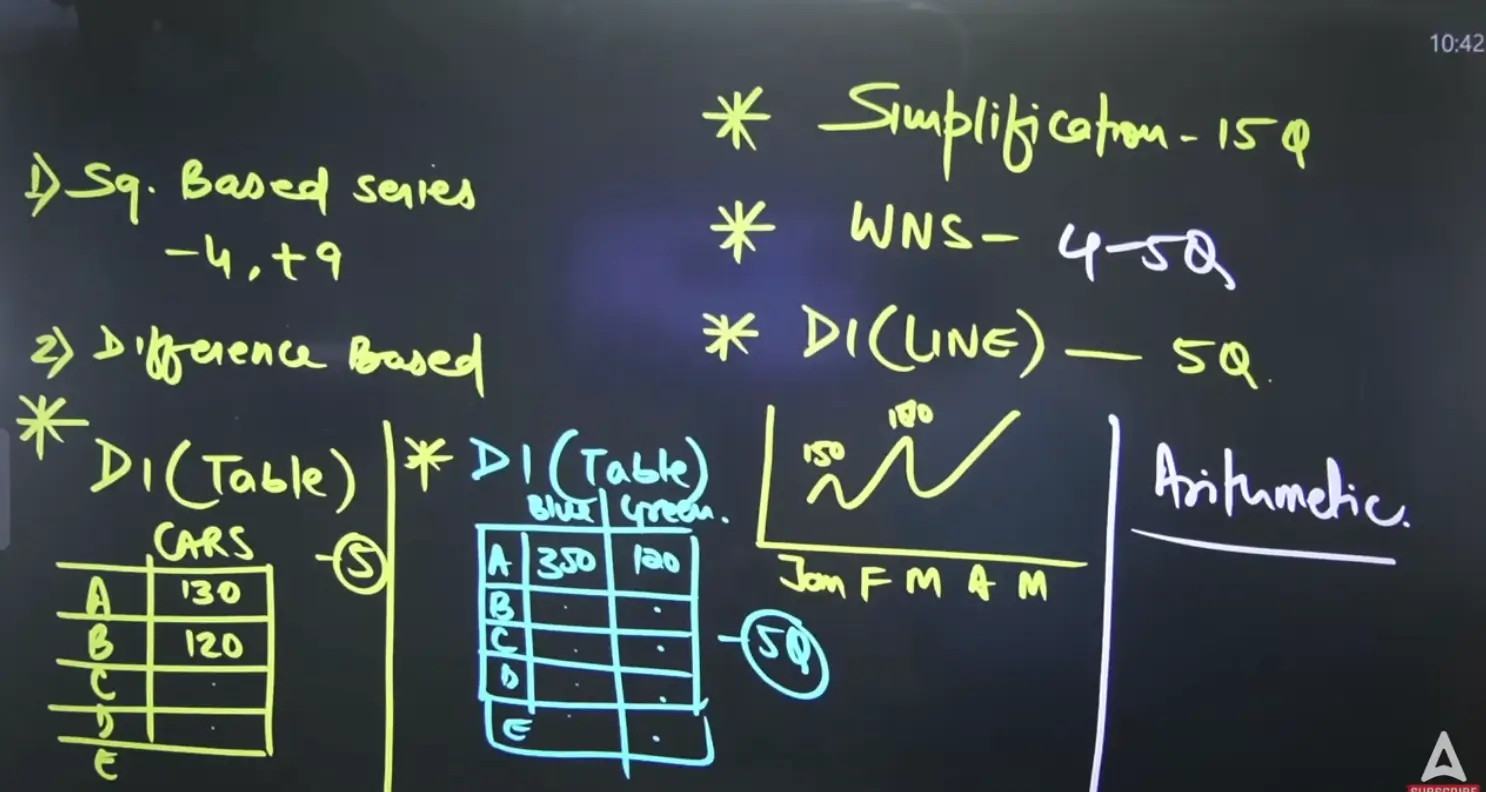 10:42
* Simplification - 15Q
* WNS - 4-5Q
* DI (LINE) — 5Q.
150
180
Jan F M A M
1) Sq. Based series
-4, +9
2) Difference Based
* DI (Table)
CARS
-5
A 130
B 120
C .
D .
E
* DI (Table)
Blue Green.
A 350 120
B . .
C . .
D . .
E . .
-5Q
Arithmetic.
SUBSCRIBE